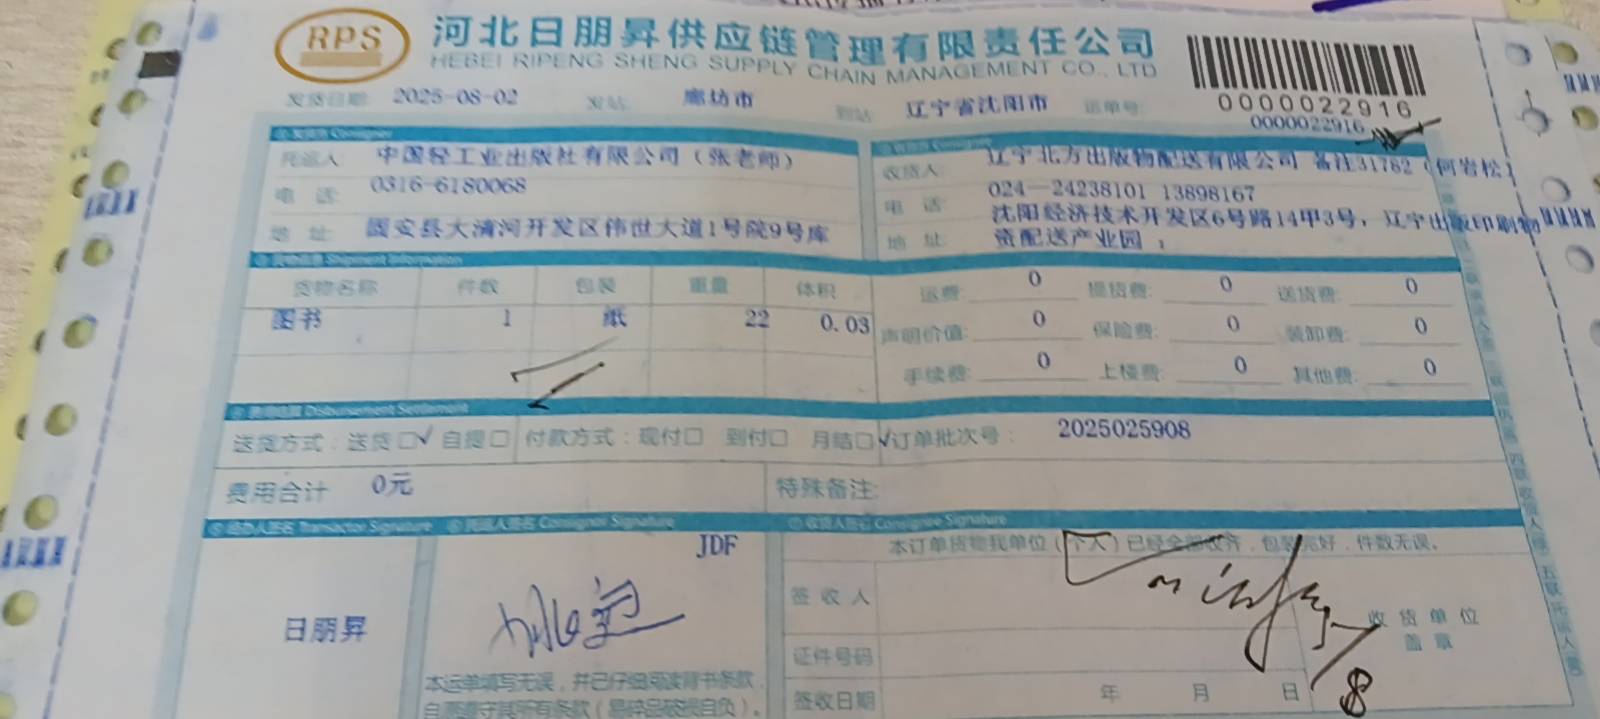 RPS
河北日朋昇供应链管理有限责任公司
HEBEI RIPENG SHENG SUPPLY CHAIN MANAGEMENT CO., LTD
发货日期: 2025-08-02 发站: 廊坊市 到站: 辽宁省沈阳市 运单号:
0000022916
0000022916
Consignor
托运人: 中国轻工业出版社有限公司（张老师）
电 话: 0316-6180068
地 址: 固安县大清河开发区伟世大道1号院9号库
收货人: 辽宁北方出版物配送有限公司 备注31782（何岩松）
电 话: 024—24238101 13898167
地 址: 沈阳经济技术开发区6号路14甲3号, 辽宁出版印刷物
资配送产业园
Shipment Information
货物名称 件数 包装 重量 体积
图书 1 纸 22 0.03
运费: 0 提货费: 0 送货费: 0
声明价值: 0 保险费: 0 装卸费: 0
手续费: 0 上楼费: 0 其他费: 0
Disbursement Settlement
送货方式：送货□√ 自提□ 付款方式：现付□ 到付□ 月结□√ 订单批次号： 2025025908
费用合计 0元 特殊备注:
经办人签名 Transactor Signature 托运人签名 Consignor Signature 收货人签名 Consignee Signature
JDF
日朋昇
本运单填写无误，并已仔细阅读背书条款，
自愿遵守其所有条款（易碎品破损自负）。
本订单货物我单位（个人）已经全部收齐，包装完好，件数无误。
签 收 人
收 货 单 位
盖 章
证件号码
签收日期 年 月 日
8